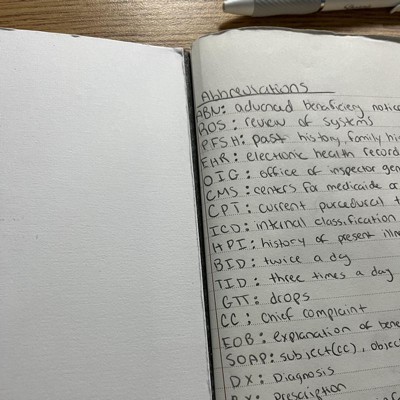 Abbreviations
ABN: advanced beneficiery notice
ROS: review of systems
PFSH: past history, family his
EHR: electronic health record
OIG: office of inspector gen
CMS: centers for medicaide a
CPT: current purcedural t
ICD: internal classification
HPI: history of present illn
BID: twice a day
TID: three times a day
GTT: drops
CC: chief complaint
EOB: explanation of bene
SOAP: subject(cc), objec
DX: Diagnosis
RX: Prescription